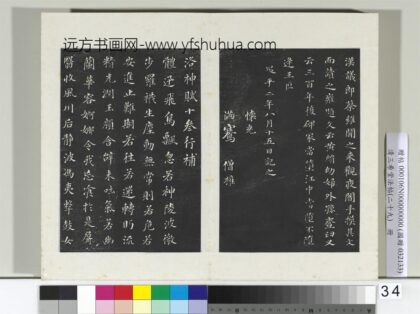 远方书画网-www.yfshuhua.com
漢議郎蔡雍聞之來觀夜闇手摸其文
而讀之雍題文云黃絹幼婦外孫齏臼又
云三百年後碑冢當墮江中當墮不墮
逢王叵
昇平二年八月十五日記之
滿騫
僧權
洛神賦十三行補
體迅飛鳧飄忽若神陵波微
步羅襪生塵動無常則若危若
安進止難期若往若還轉眄流
精光潤玉顏含辭未吐氣若幽
蘭華容婀娜令我忘飡於是屏
翳收風川后靜波馮夷擊鼓女
34